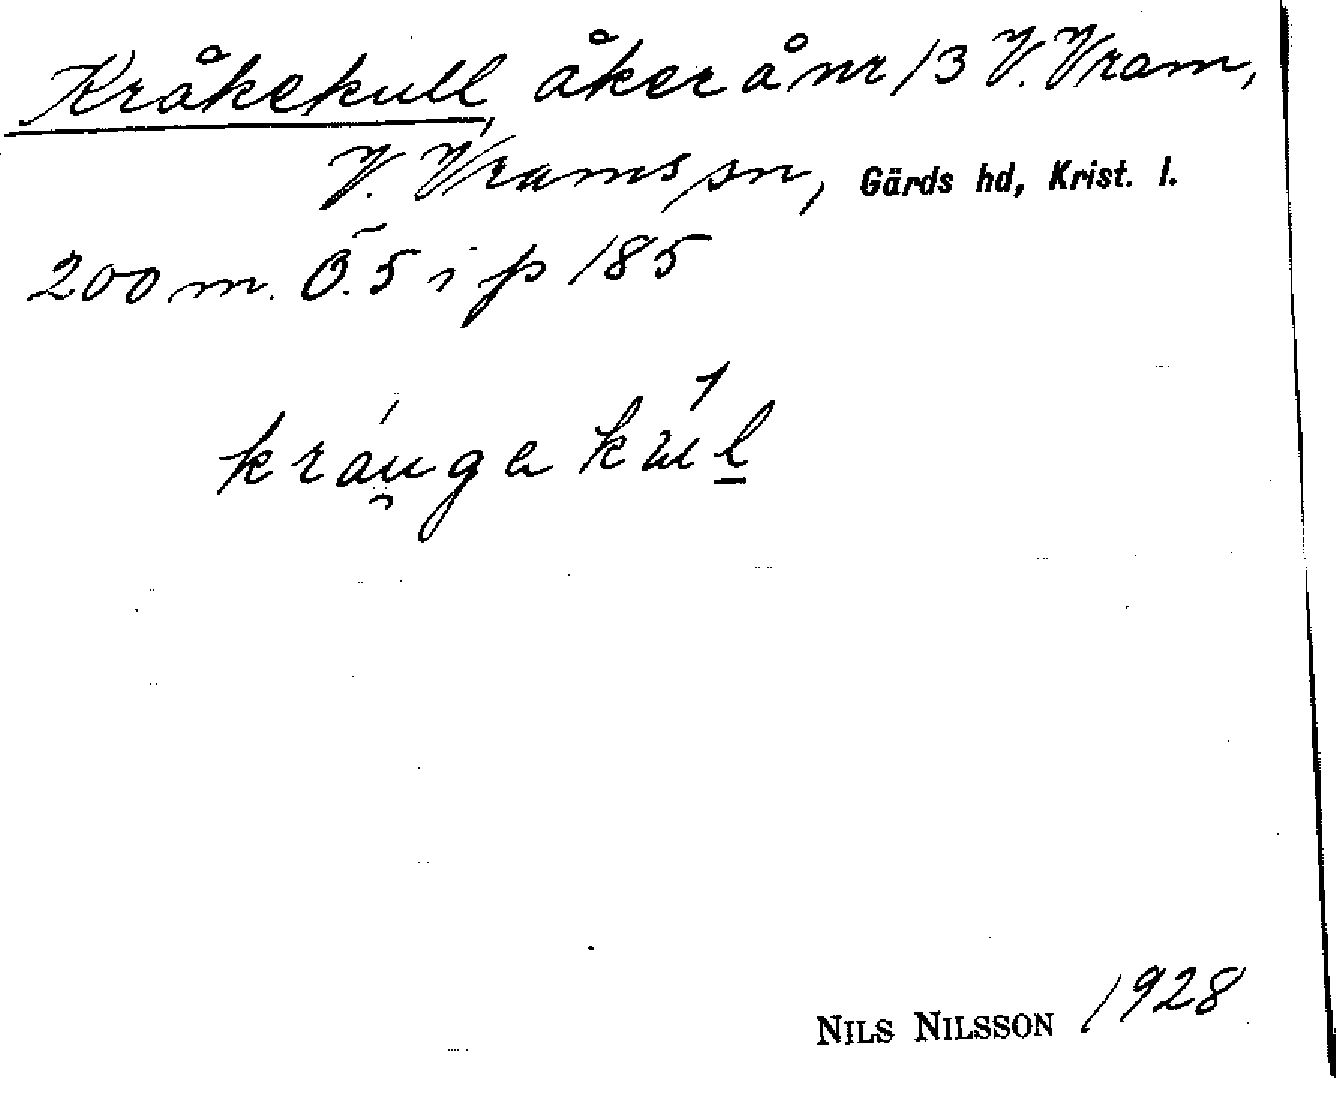 Kråkekull, åker å nr 13 V. Vram,
V. Vrams sn, Gärds hd, Krist. l.
200 m. Ö. 5 i p 185
kráu̯ga kul̲
NILS NILSSON 1928